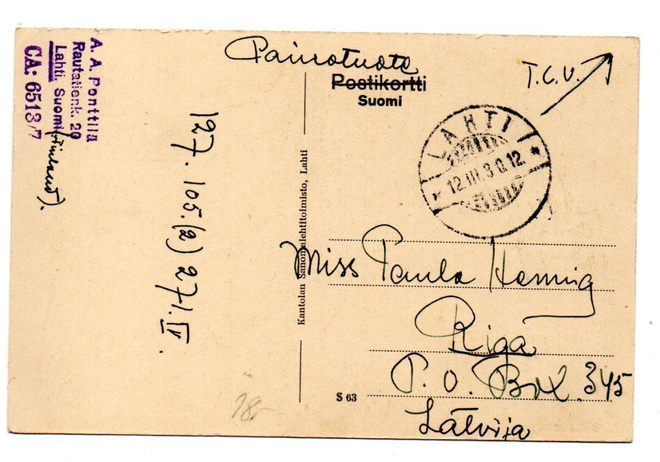 A. A. Ponttila
Rautatienk. 20
Lahti, Suomi
(Finland).
CA: 6513/7
Painotuote
Postikortti
Suomi
T.C.V.
LAHTI
12.III.30.12
127. 105.(2) 271.IV.
Kantolan Sanomalehtitoimisto, Lahti
Miss Paula Hennig
Riga
P.O. Box 345
Latvija
S 63
18-